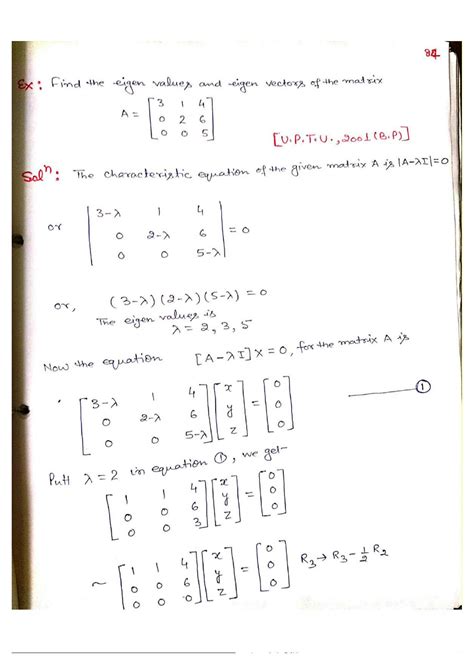 84
Ex: Find the eigen values and eigen vectors of the matrix
A = [3 1 4
0 2 6
0 0 5]
[U.P.T.U., 2001 (B.P)]
Solⁿ: The characteristic equation of the given matrix A is |A-λI|=0
or |3-λ 1 4
0 2-λ 6
0 0 5-λ| = 0
or, (3-λ)(2-λ)(5-λ) = 0
The eigen values is
λ = 2, 3, 5
Now the equation [A-λI] X = 0, for the matrix A is
[3-λ 1 4
0 2-λ 6
0 0 5-λ] [x
y
z] = [0
0
0] —— ①
Putt λ = 2 in equation ①, we get-
[1 1 4
0 0 6
0 0 3] [x
y
z] = [0
0
0]
~ [1 1 4
0 0 6
0 0 0] [x
y
z] = [0
0
0] R₃ → R₃ - 1/2 R₂